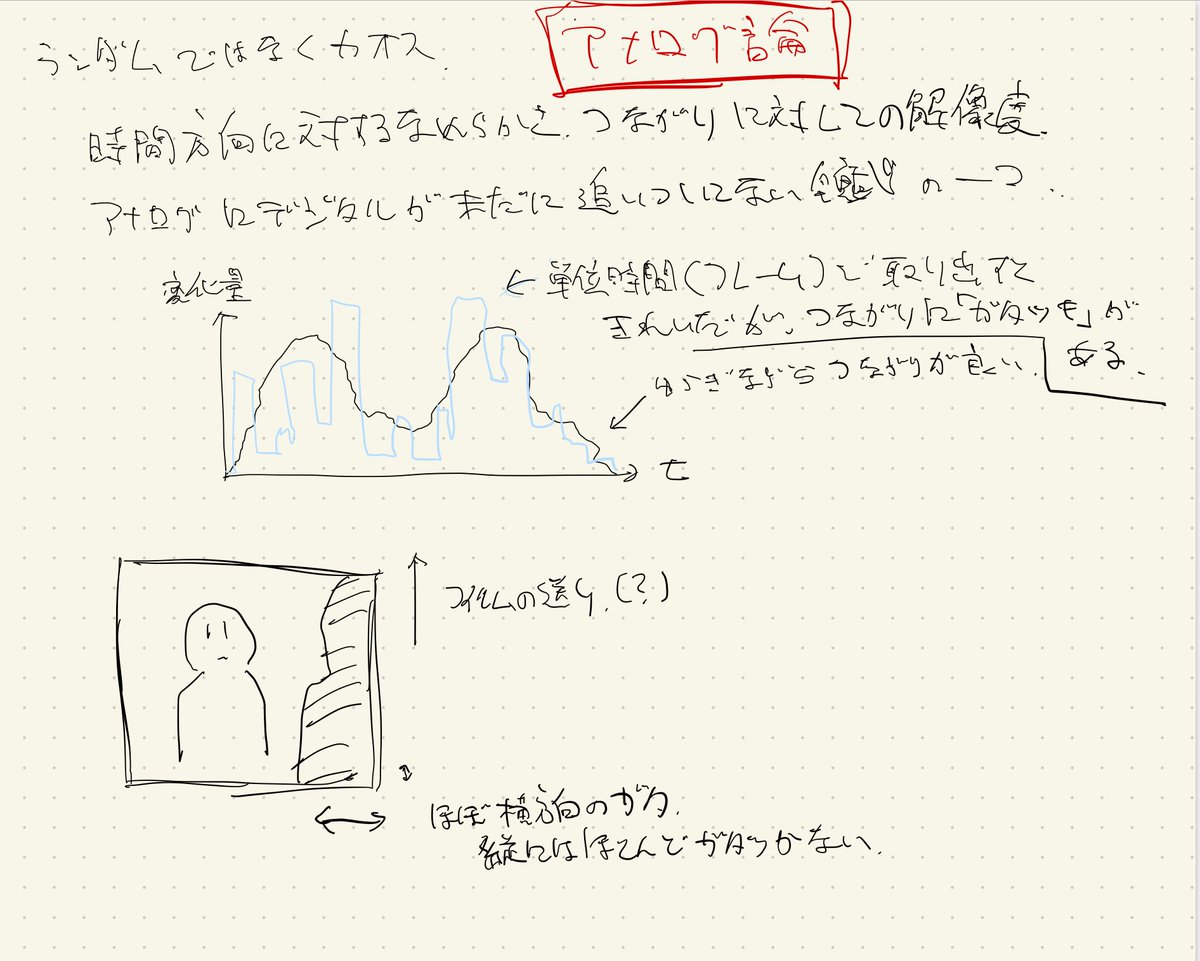 アナログ論
ランダムではなくカオス.
時間方向に対するなめらかさ.つながりに対しての解像度.
アナログにデジタルがまだに追いついていない の一つ.
変化量
← 単位時間(フレーム)で取り出すと
きれいだが、つながりに「ガタッも」が
ある.
ゆらぎながらつながりが良い.
t
フィルムの送り.(?)
ほぼ横方向のガタ.
縦にはほとんどガタつかない.